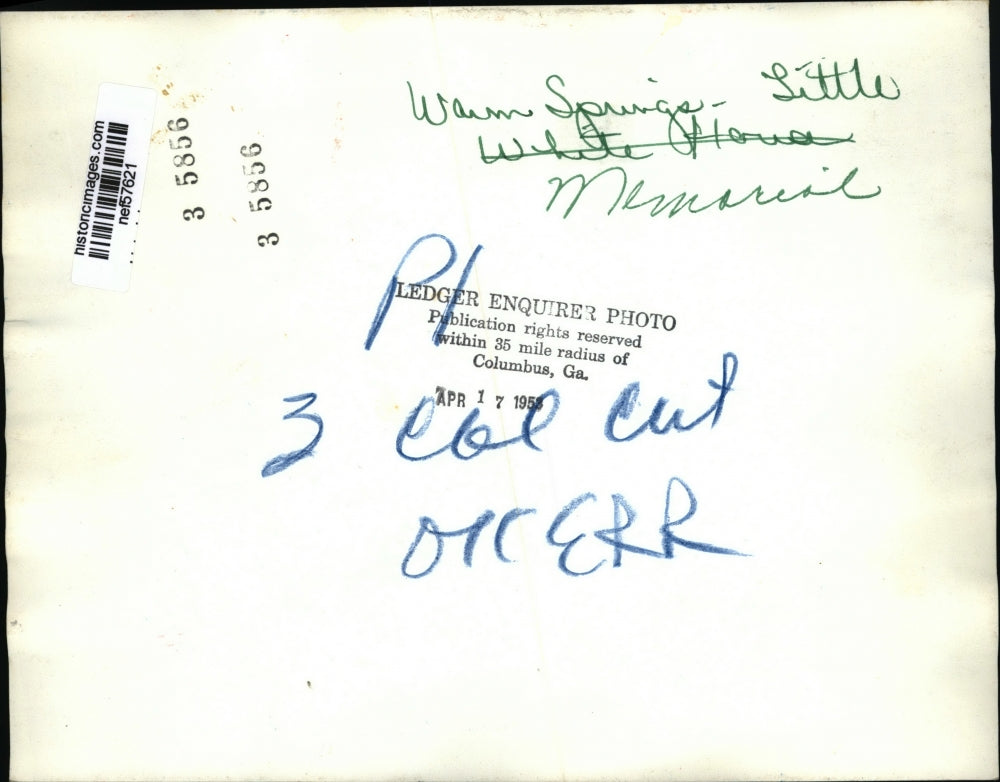 Warm Springs - Little
White House
Memorial
historicimages.com
nef57621
3 5856
3 5856
P1
LEDGER ENQUIRER PHOTO
Publication rights reserved
within 35 mile radius of
Columbus, Ga.
APR 17 1958
3 col cut
OK ERR